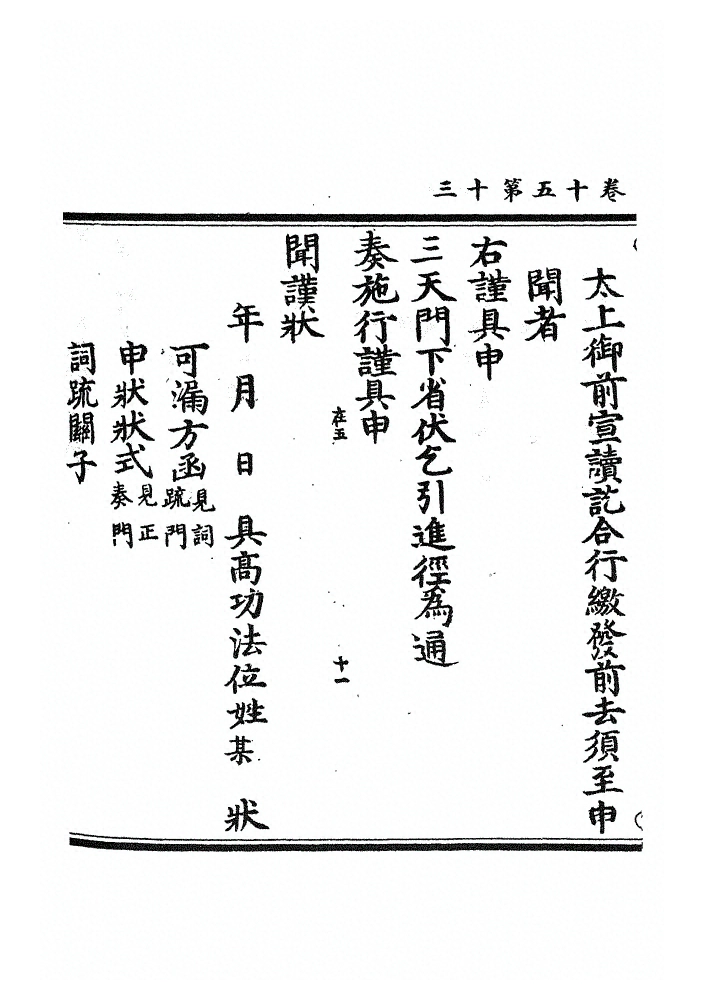 卷十五第十三
太上御前宣讀訖合行繳發前去須至申
聞者
右謹具申
三天門下省伏乞引進徑為通
奏施行謹具申
在五
十一
聞謹狀
年 月 日 具高功法位姓某 狀
可漏方函見詞疏門
申狀狀式見正奏門
詞疏關子